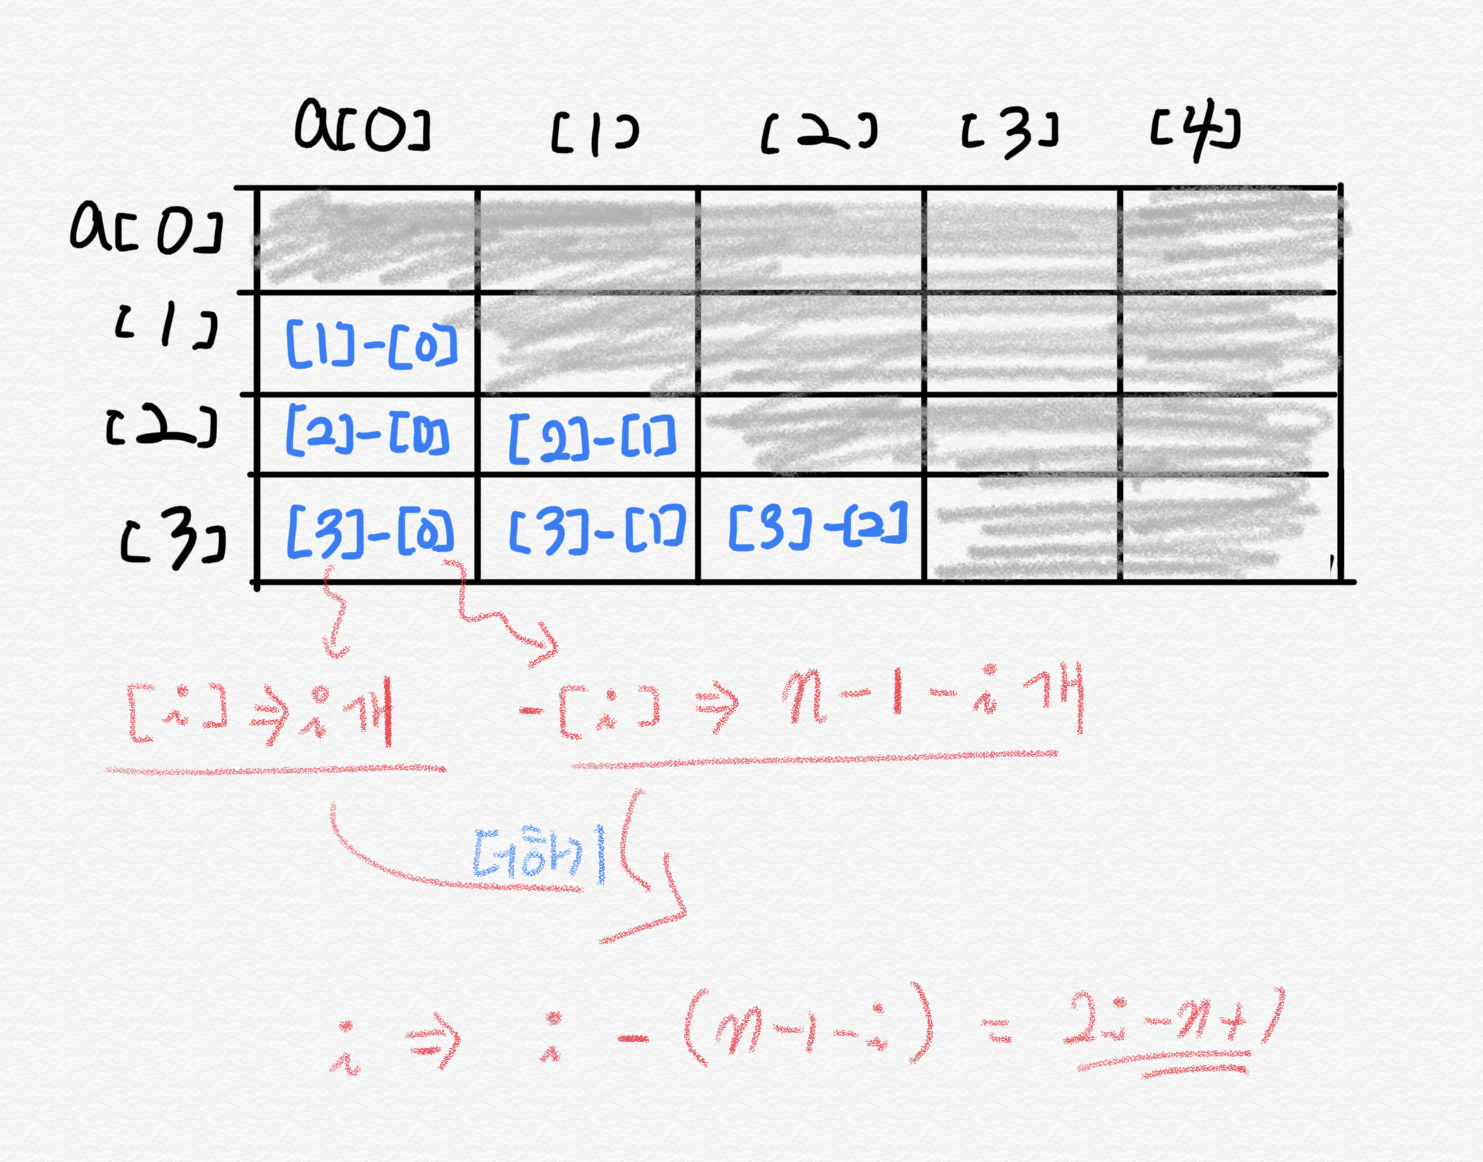 a[0] [1] [2] [3] [4]
a[0]
[1] [1]-[0]
[2] [2]-[0] [2]-[1]
[3] [3]-[0] [3]-[1] [3]-[2]
[i] ⇒ i개 -[i] ⇒ n-1-i개
더하기
i ⇒ i - (n-1-i) = 2i-n+1